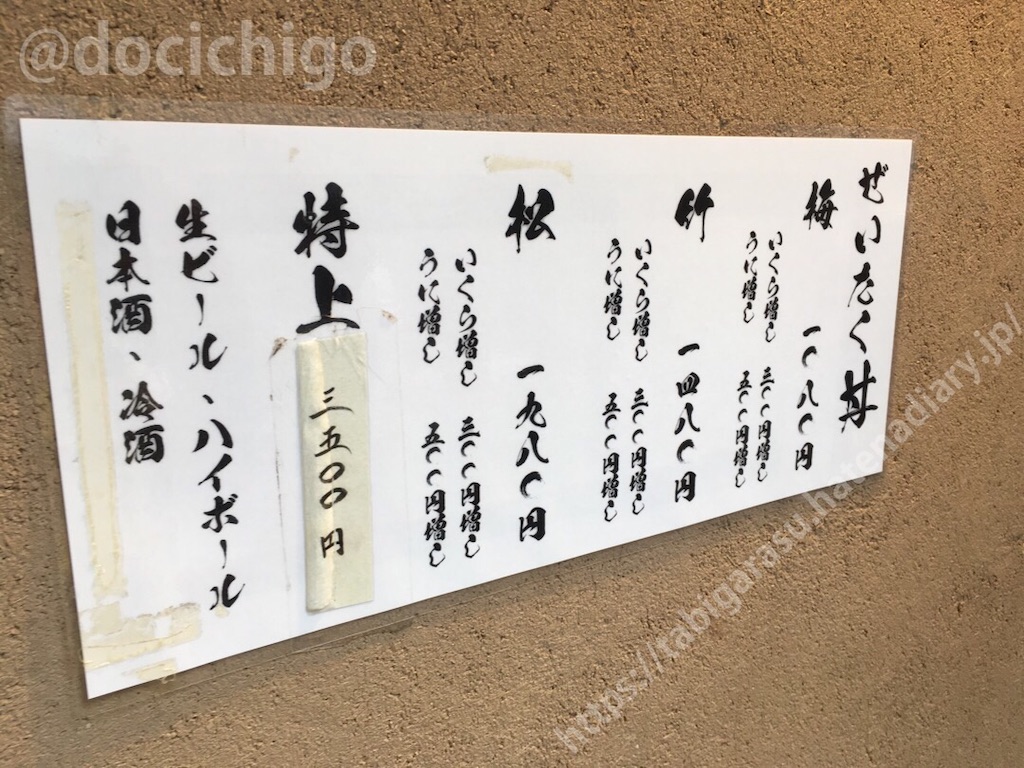 @docichigo
ぜいたく丼
梅 一〇八〇円
いくら増し 三〇〇円増し
うに増し 五〇〇円増し
竹 一四八〇円
いくら増し 三〇〇円増し
うに増し 五〇〇円増し
松 一九八〇円
いくら増し 三〇〇円増し
うに増し 五〇〇円増し
特上 三五〇〇円
生ビール、ハイボール
日本酒、冷酒
https://tabigarasu.hatenadiary.jp/